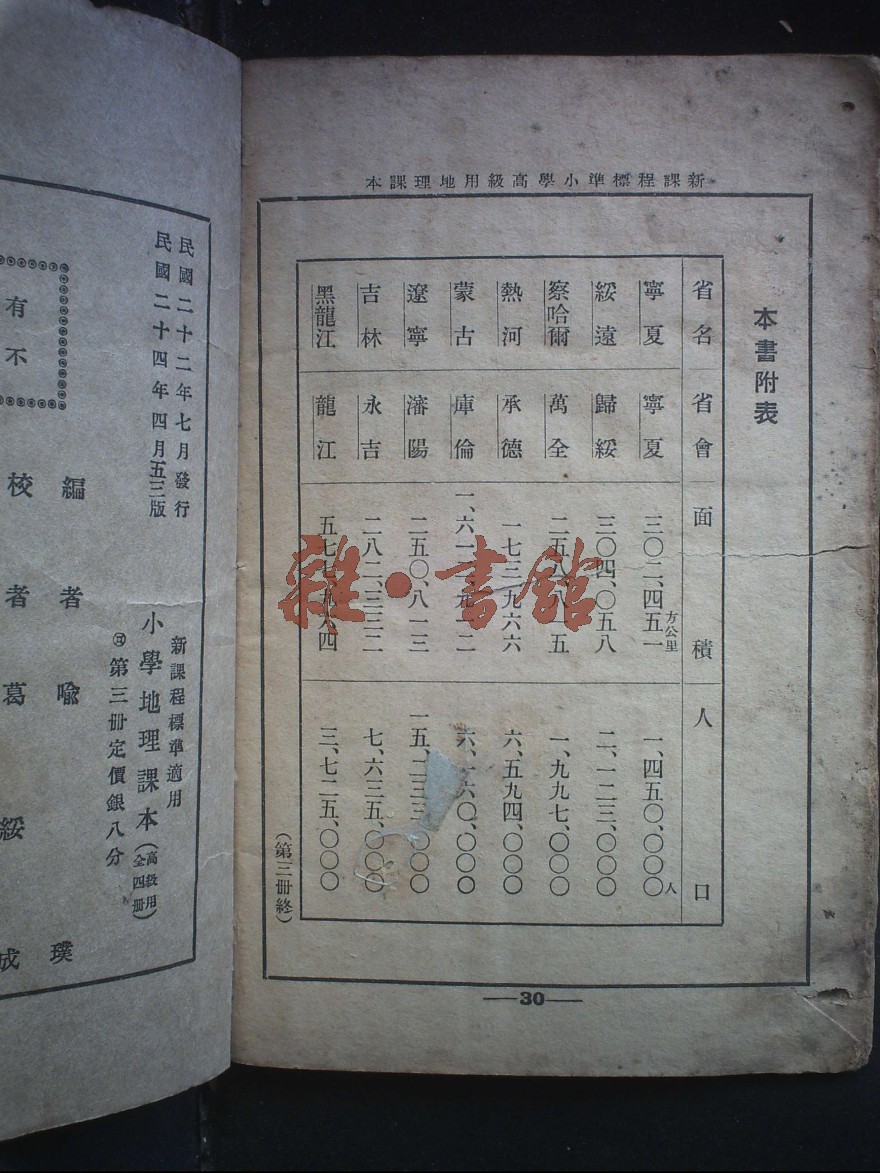 新課程標準小學高級用地理課本
本書附表
省名 省會 面積 人口
寧夏 寧夏 三〇二、四五一方公里 一、四五〇、〇〇〇人
綏遠 歸綏 三〇四、〇五八 二、一二三、〇〇〇
察哈爾 萬全 二五八、八一五 一、九九七、〇〇〇
熱河 承德 一七三、九六六 六、五九四、〇〇〇
蒙古 庫倫 一、六一二、九一二 六、一六〇、〇〇〇
遼寧 瀋陽 二五〇、八一三 一五、二三三、〇〇〇
吉林 永吉 二八二、三三二 七、六三五、〇〇〇
黑龍江 龍江 三、七二五、〇〇〇
(第三册終)
—30—
雜·書館
民國二十二年七月發行
民國二十四年四月五三版
新課程標準適用
小學地理課本(高級用全四册)
第三册定價銀八分
編者喩璞
校者葛綏成
有不